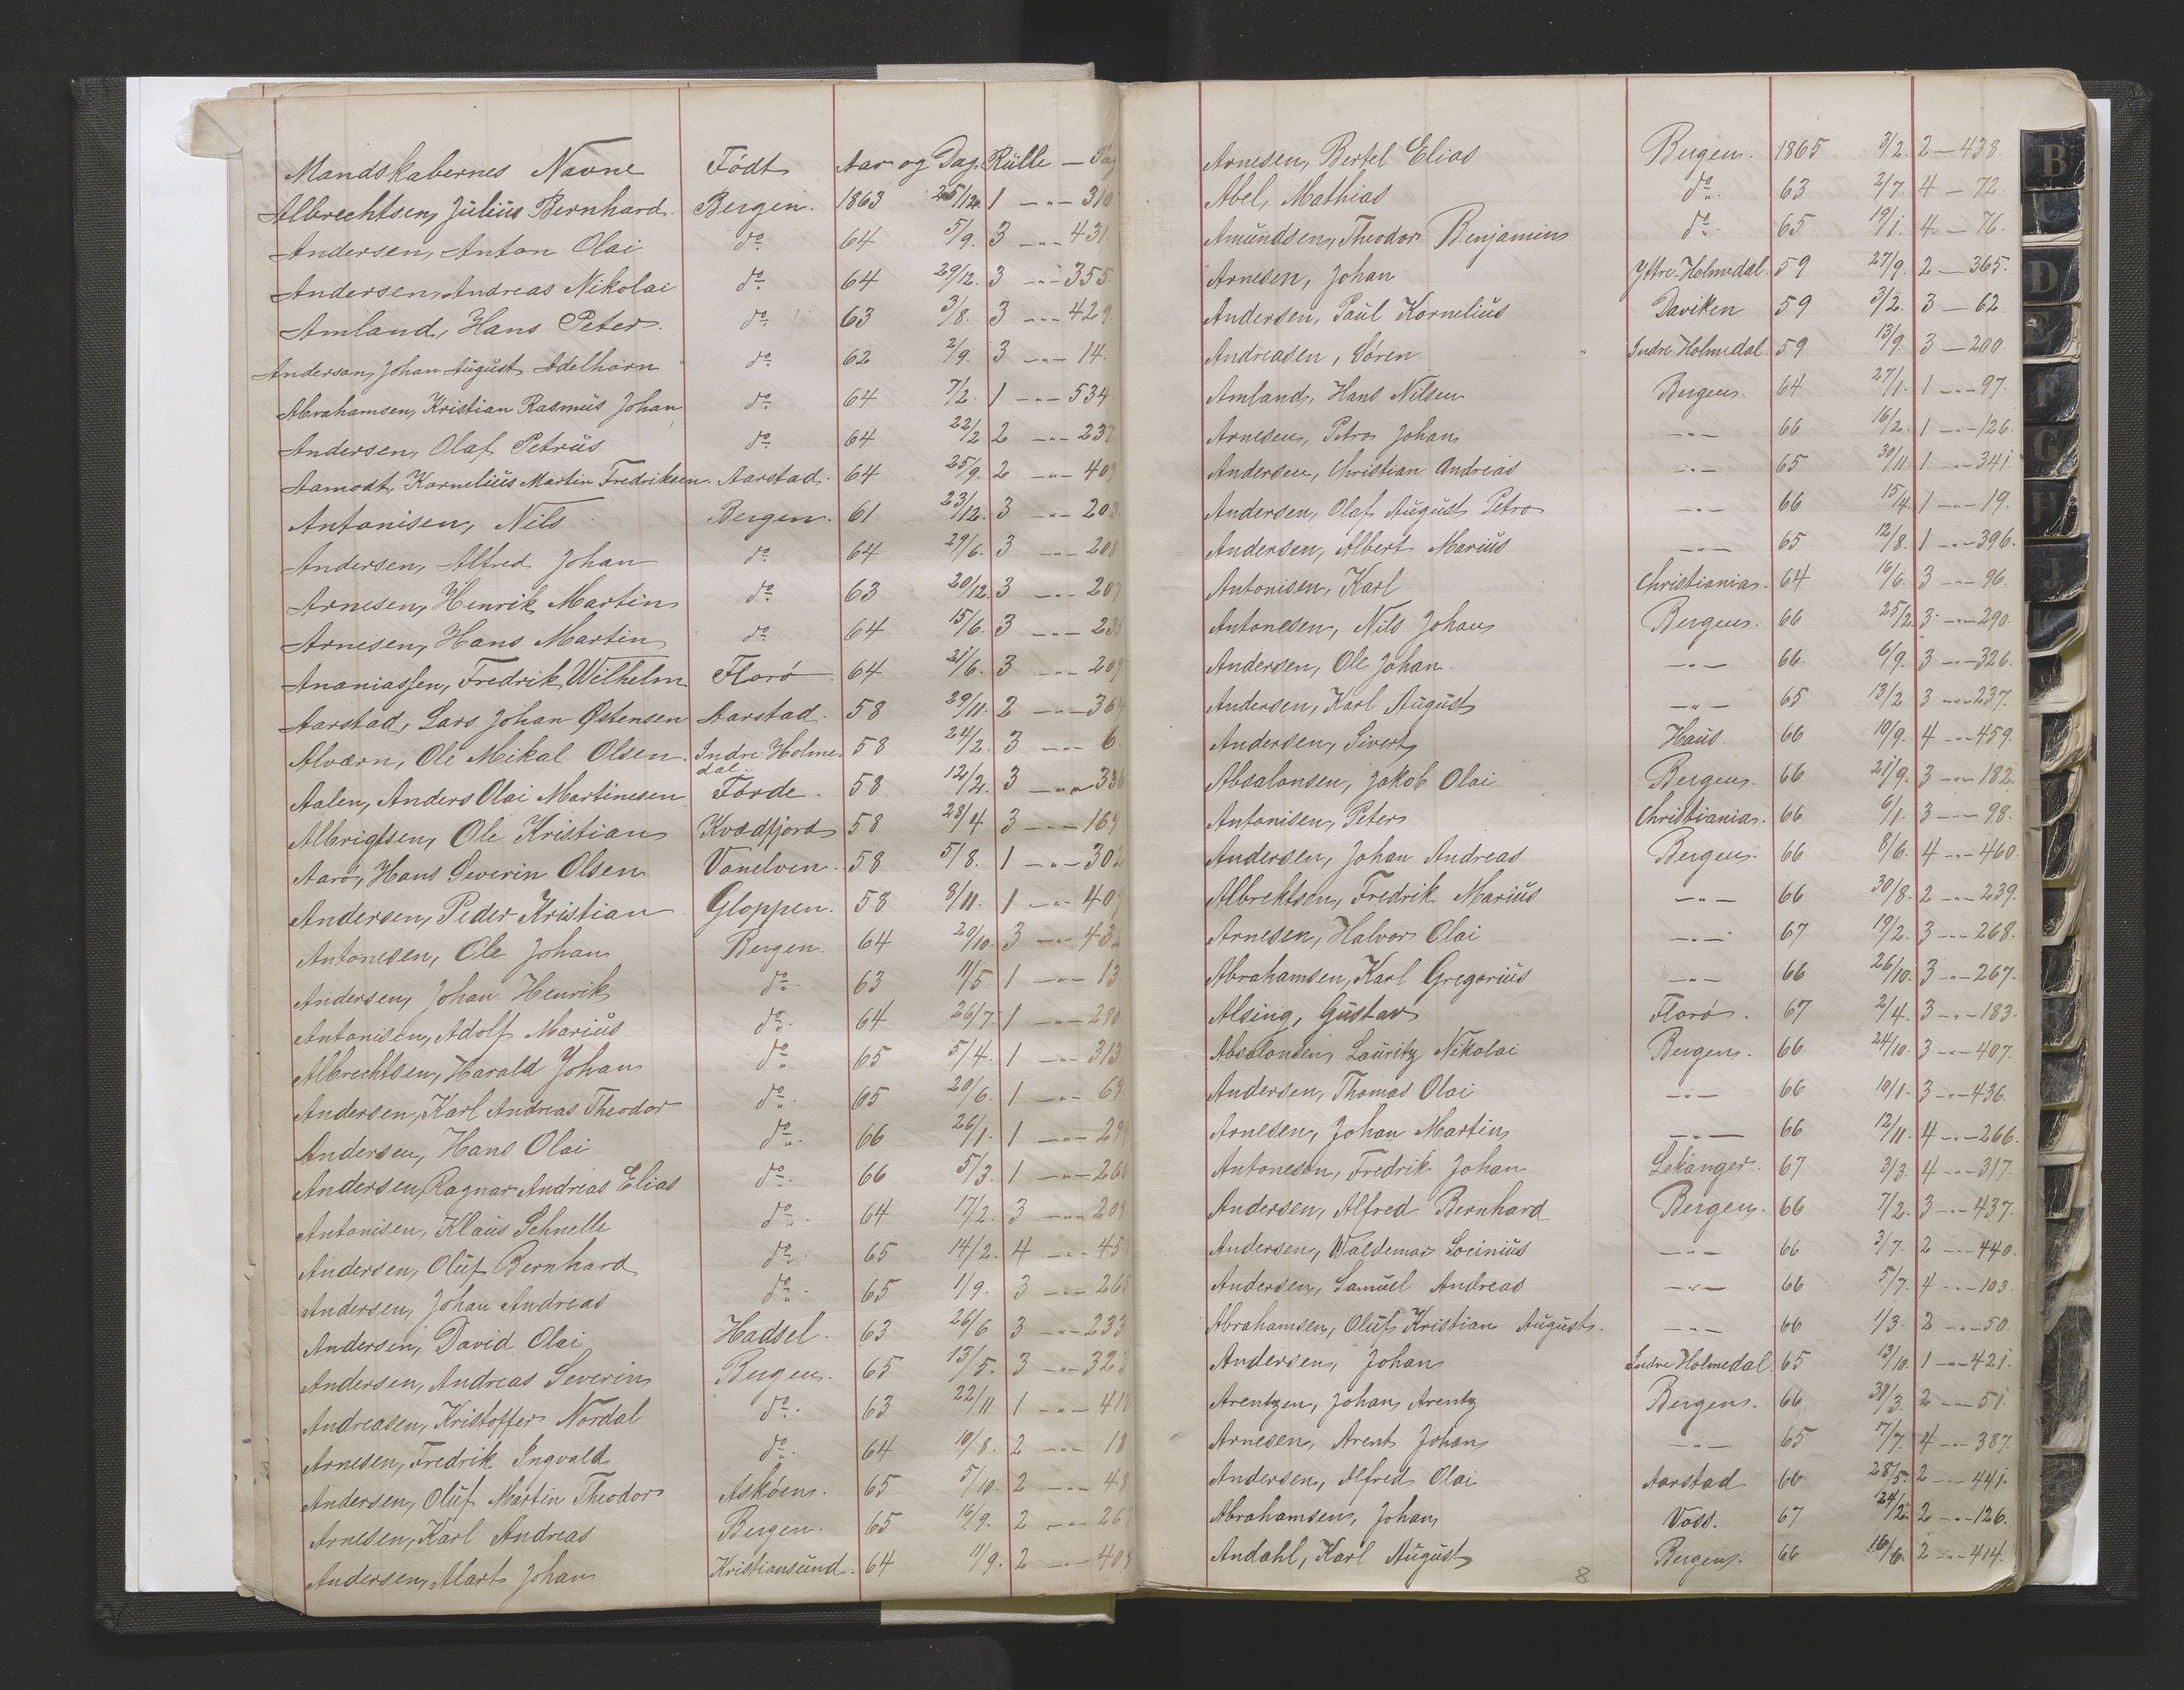 Mandskabernes Navne Födt Aar og Dag. Rülle — Pag
Albrechtsen, Julius Bernhard. Bergen. 1863 25/12. 1 -„- 310
Andersen, Anton Olai do 64 5/9. 3 -„- 431.
Andersen, Andreas Nikolai do 64 29/12. 3 -„- 355.
Amland, Hans Peter. do 63 3/8. 3 -„- 429.
Anderson, Johan August Adelhorn do 62 2/9. 3 -„- 14.
Abrahamsen, Kristian Rasmus Johan do 64 7/2. 1 -„- 534
Andersen, Olaf Petrus do 64 22/2 2 -„- 237
Aamodt, Kornelius Martin Fredriksen. Aarstad. 64 25/9. 2 -„- 409
Antonisen, Nils Bergen. 61 23/12. 3 -„- 203
Andersen, Alfred Johan do 64 29/6. 3 -„- 208
Arnesen, Henrik Martin do 63 20/12. 3 -„- 207
Arnesen, Hans Martin do 64 15/6. 3 -„- 23
Ananiassen, Fredrik Wilhelm Florö. 64 21/6. 3 -„- 209
Aarstad, Lars Johan Østensen Aarstad. 58 29/11. 2 -„- 364
Alværn, Ole Mikal Olsen. Indre Holmedal. 58 24/2. 3 -„- 6.
Aalen, Anders Olai Martinesen Förde. 58 12/2. 3 -„- 336
Albrigtsen, Ole Kristian Kvædfjord 58 28/4 3 -„- 169
Aarö, Hans Severin Olsen Vanelven. 58 5/8. 1 -„- 302
Andersen, Peder Kristian Gloppen. 58 8/11. 1 -„- 409
Antonesen, Ole Johan Bergen. 64 20/10. 3 -„- 432
Andersen, Johan Henrik do 63 11/5. 1 -„- 13.
Antonisen, Adolf Marius do 64 26/7. 1 -„- 290
Albrechtsen, Harald Johan do 65 5/4. 1 -„- 313
Andersen, Karl Andreas Theodor do 65 20/6. 1 -„- 69
Andersen, Hans Olai do 66 26/1. 1 -„- 29
Andersen, Ragnar Andreas Elias do 66 5/3. 1 -„- 266
Antonisen, Klaus Schnelle do 64 17/2. 3 -„- 209
Andersen, Oluf Bernhard do 65 14/2. 4 -„- 45
Andersen, Johan Andreas do 65 1/9. 3 -„- 268
Andersen, David Olai Hadsel. 63 26/6 3 -„- 233
Andersen, Andreas Severin Bergen. 65 13/5. 3 -„- 323
Andreasen, Kristoffer Nordal do 63 22/11 1 -„- 419
Arnesen, Fredrik Ingvald do 64 10/8. 2 -„- 18
Andersen, Oluf Martin Theodor Asköen. 65 5/10. 2 -„- 48
Arnesen, Karl Andreas Bergen. 65 16/9. 2 -„- 26
Andersen, Mart Johan Kristiansund. 64 11/9. 2 -„- 408
Arnesen, Bertel Elias Bergen. 1865 3/2. 2 — 438
Abel, Mathias do 63 2/7. 4 — 72.
Amundsen, Theodor Benjamin do 65 19/1. 4. — 76.
Arnesen, Johan Yttre-Holmedal. 59 27/9. 2 — 365.
Andersen, Paul Kornelius Daviken 59 3/2. 3 — 62
Andreasen, Sören Indre Holmedal 59 13/9. 3 — 200
Amland, Hans Nilsen Bergen. 64 27/1. 1 -„- 97.
Arnesen, Petro Johan -„- 66 16/2. 1 -„- 126.
Andersen, Christian Andreas -„- 65 30/11. 1 -„- 341.
Andersen, Olaf August Petro -„- 66 15/4. 1 -„- 19.
Andersen, Albert Marius -„- 65 12/8. 1 -„- 396.
Antonisen, Karl Christiania. 64 16/6. 3 -„- 96.
Antonesen, Nils Johan Bergen. 66 25/2. 3 -„- 290.
Andersen, Ole Johan. -„- 66. 6/9. 3 -„- 326.
Andersen, Karl August -„- 65 13/2 3 -„- 237.
Andersen, Sivert Haus. 66 10/9. 4 -„- 459.
Absalonsen, Jakob Olai Bergen. 66 21/9. 3 -„- 182.
Antonisen, Peter Christiania. 66 6/1. 3 -„- 98.
Andersen, Johan Andreas Bergen. 66 8/6. 4 -„- 460.
Albrektsen, Fredrik Marius -„- 66 30/8. 2 -„- 239.
Arnesen, Halvor Olai -„- 67 19/2. 3 -„- 268.
Abrahamsen, Karl Gregorius -„- 66 26/10. 3 -„- 267.
Alsing, Gustav Florö. 67 2/4. 3 -„- 183.
Absalonsen, Lauritz Nikolai Bergen. 66 24/10. 3 -„- 407.
Andersen, Thomas Olai -„- 66 10/1. 3 -„- 436.
Arnesen, Johan Martin -„- 66 12/11. 4 -„- 266.
Antonesen, Fredrik Johan Lekanger. 67 3/3. 4 -„- 317.
Andersen, Alfred Bernhard Bergen. 66 7/2. 3 -„- 437.
Andersen, Waldemar Socinius -„- 66 3/7. 2 -„- 440.
Andersen, Samuel Andreas -„- 66 5/7. 4 -„- 103.
Abrahamsen, Oluf Kristian August. -„- 66 1/3. 2 -„- 50.
Andersen, Johan Indre Holmedal. 65 13/10. 1 -„- 421.
Arentzen, Johan Arentz Bergen. 66 31/3. 2 -„- 51.
Arnesen, Arent Johan -„- 65 17/7. 4 -„- 387.
Andersen, Alfred Olai Aarstad 66 28/5. 2 -„- 441.
Abrahamsen, Johan Voss. 67 24/2. 2 -„- 126.
Andahl, Karl August Bergen. 66 16/6. 2 -„- 414.
8
B
C
D
E
F
G
H
J
K